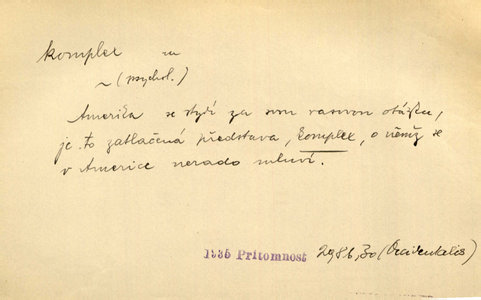 komplex -u
~ (psychol.)
Amerika se stydí za svou rasovou otázku,
je to zatlačená představa, komplex, o němž se
v Americe nerado mluví.
1935 Přítomnost 298 b, 30 (Occidentalis)